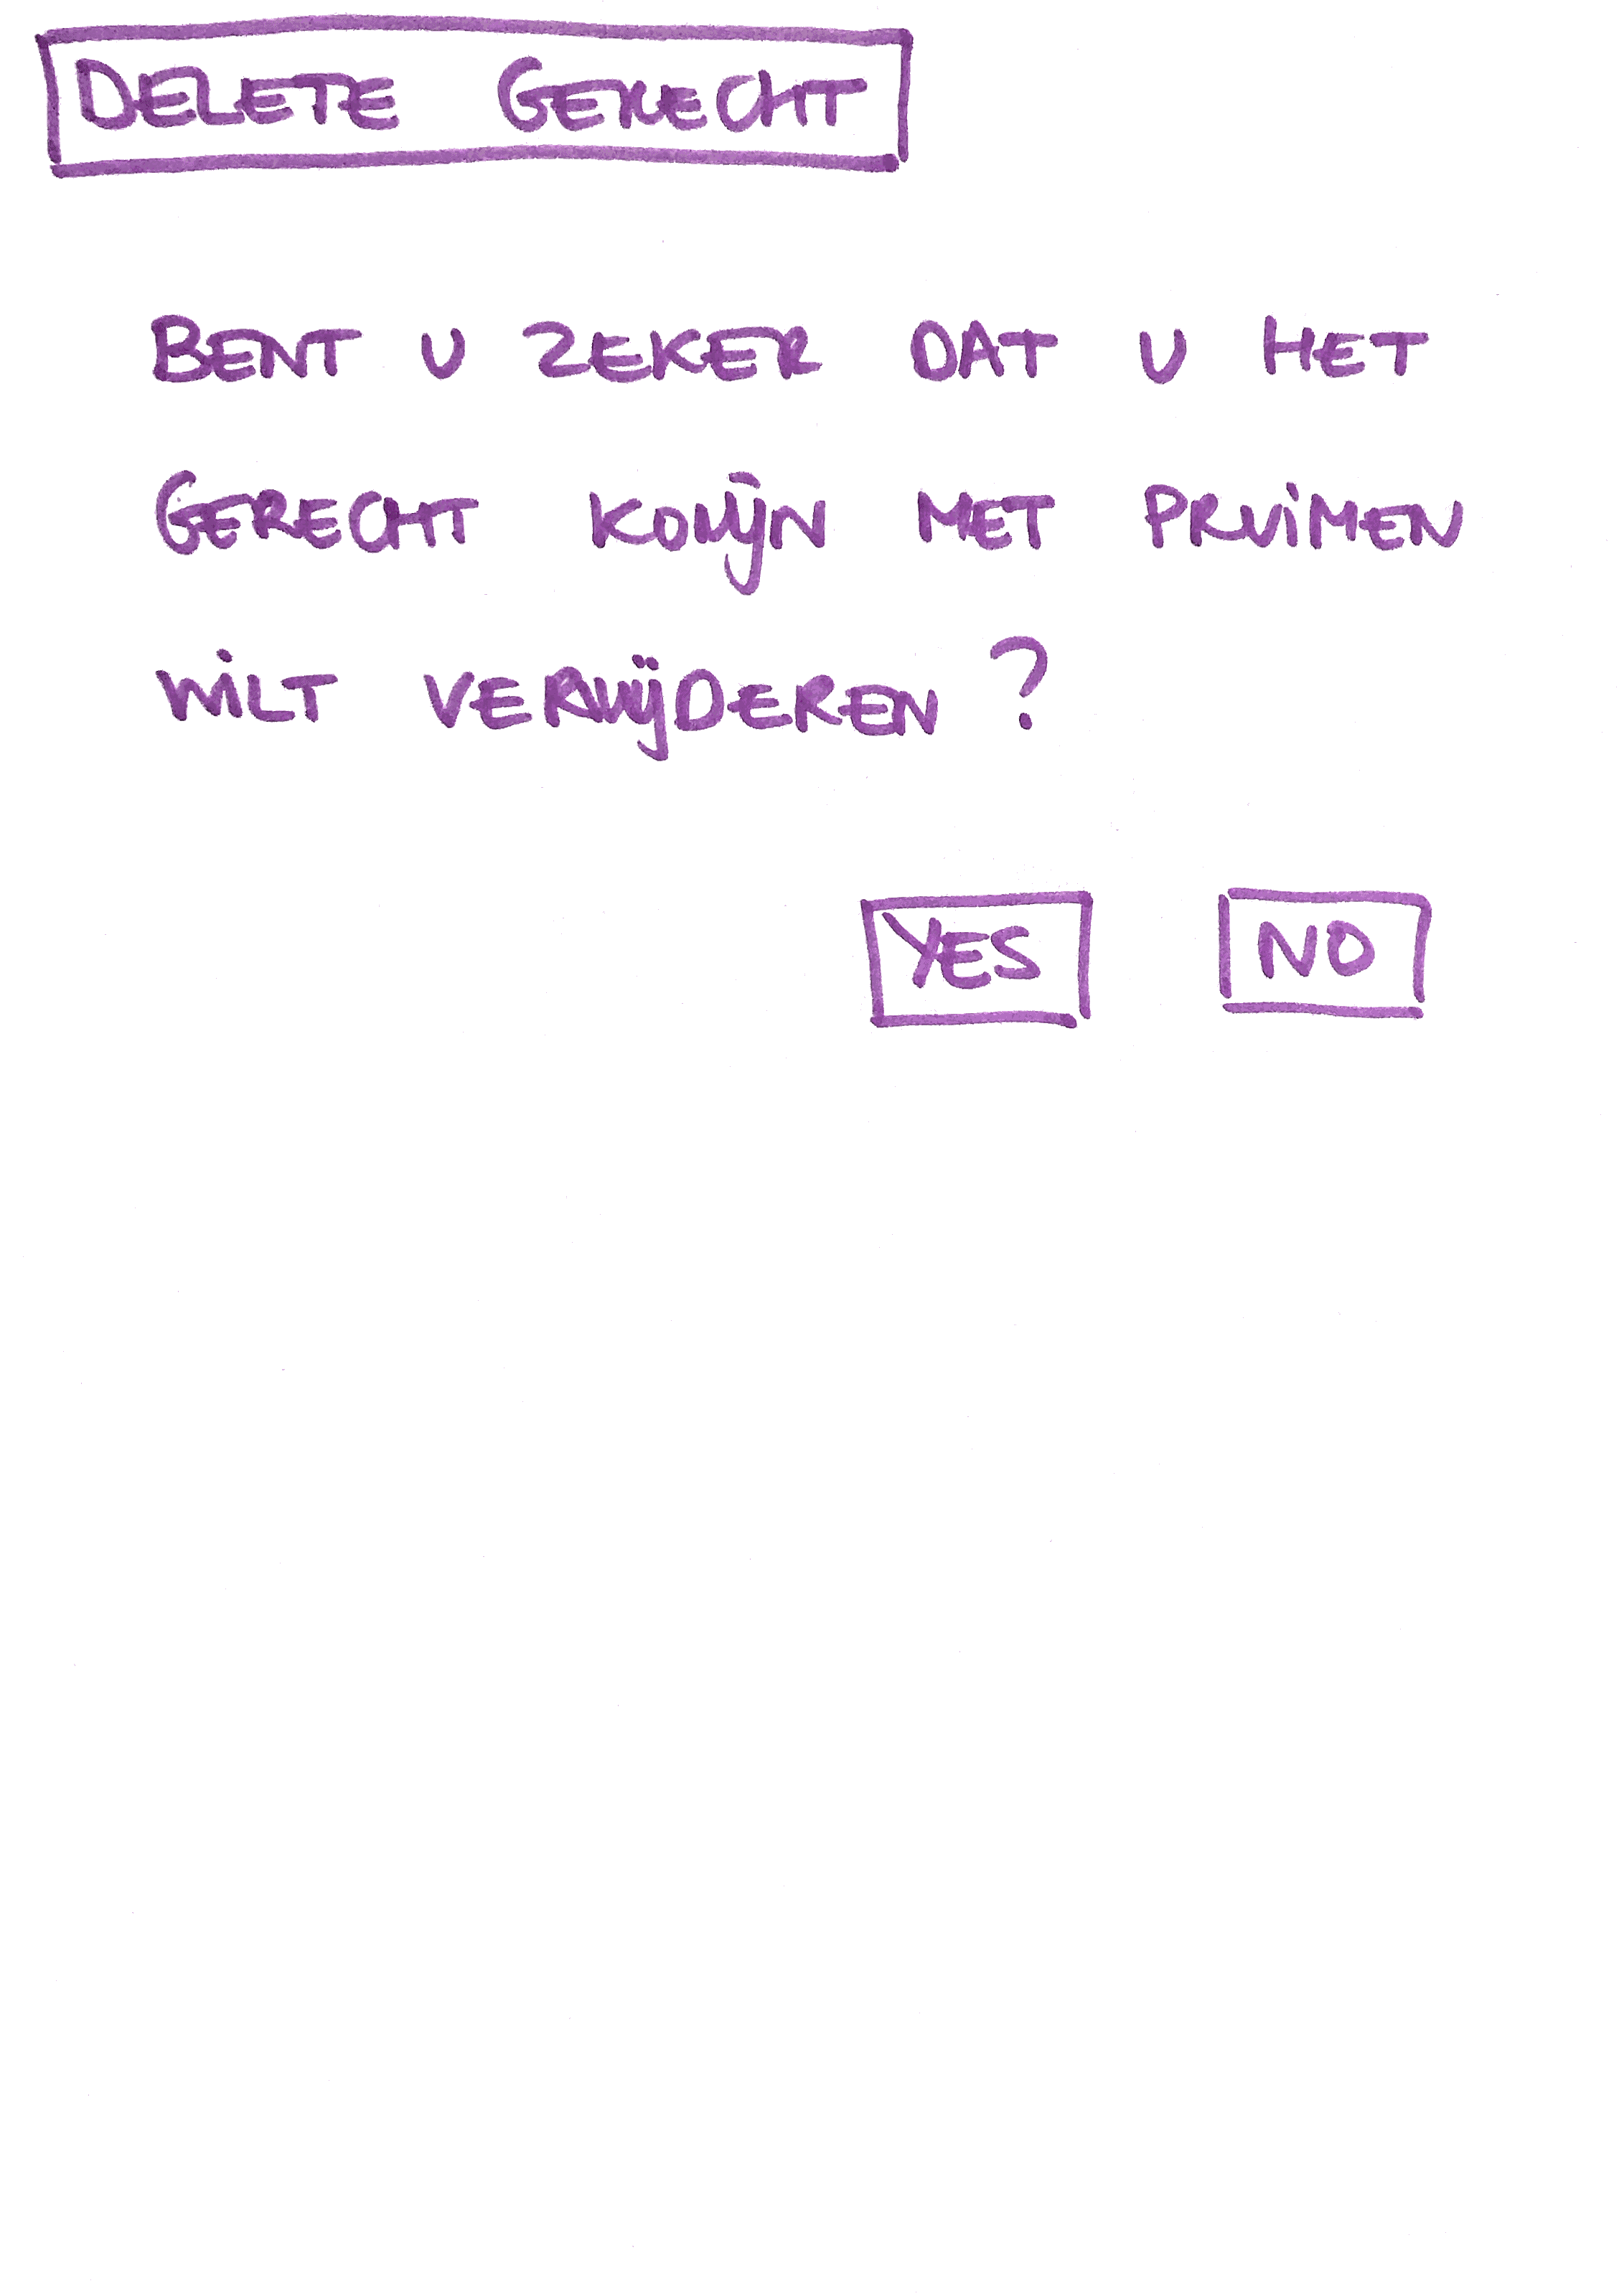 DELETE GERECHT
BENT U ZEKER DAT U HET
GERECHT KONIJN MET PRUIMEN
WILT VERWIJDEREN ?
YES NO